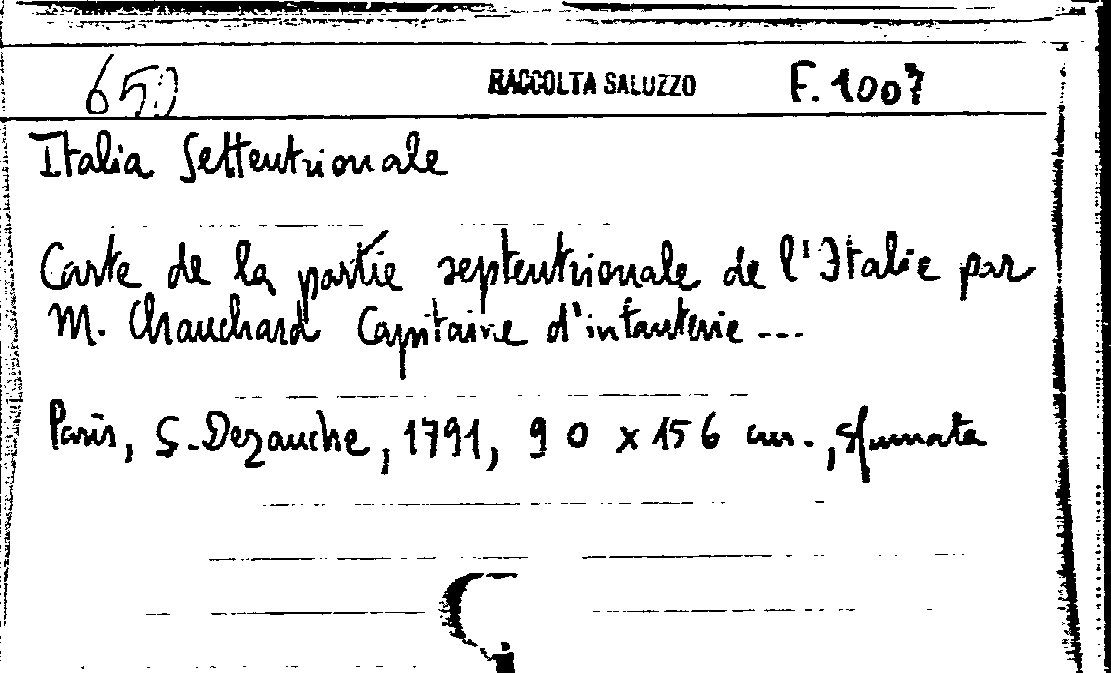 650 RACCOLTA SALUZZO F. 1007
Italia Settentrionale
Carte de la partie septentrionale de l'Italie par
M. Chauchard Capitaine d'infanterie ...
Paris, S. Dezauche, 1791, 90 x 156 cm., sfumata